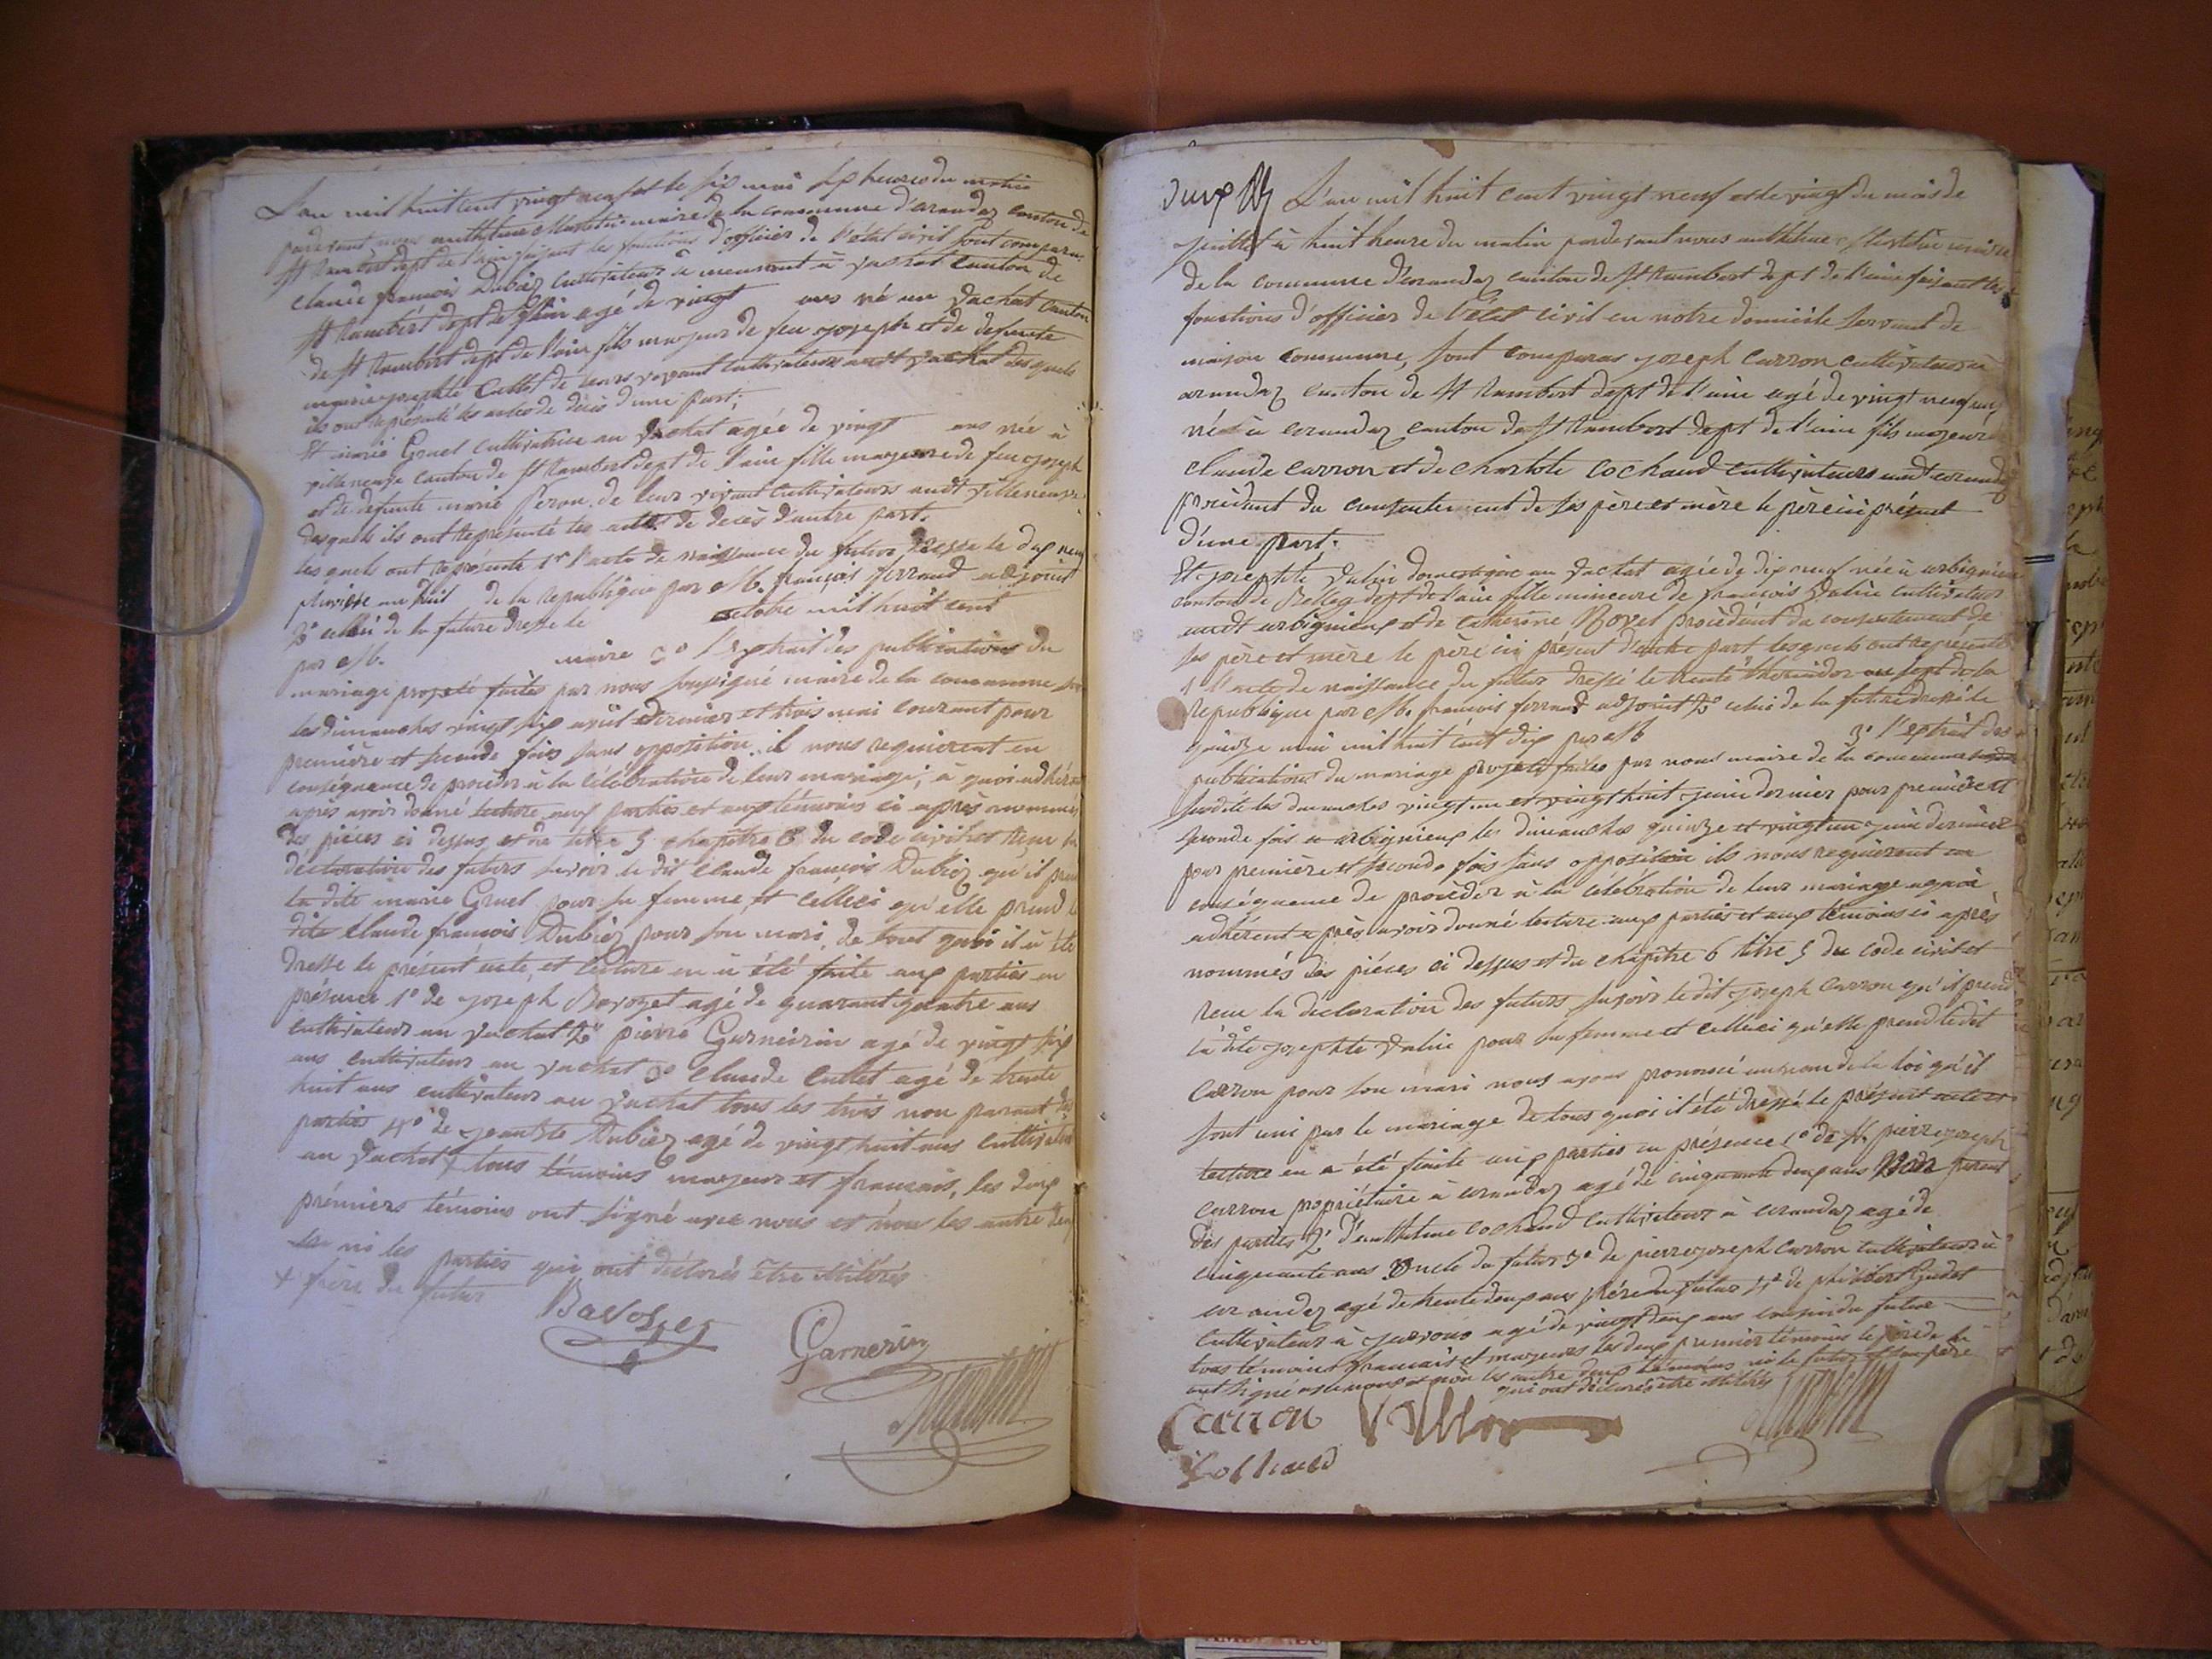 L'an mil huit cent vingt neuf et le six mai six heures du matin
pardevant nous anthelme maire de la commune d'arandaz canton de
St Rambert dept de l'ain faisant les fonctions d'officier de l'état civil sont comparus
claude francois Dubiez cultivateur demeurant à vachat canton de
St Rambert dept de l'ain agé de vingt ans né au vachat canton
de St Rambert dept de l'ain fils majeur de feu joseph et de defunte
marie josephte Cullet de leurs vivant cultivateurs audt vachat desquels
ils ont représenté les actes de décès d'une part;
Et marie Gruel cultivatrice au vachat agée de vingt ans née à
villeneuve canton de St Rambert dept de l'ain fille majeure de feu joseph
et de defunte marie de leur vivant cultivateurs audt villeneuve
desquels ils ont représenté les actes de decès d'autre part.
les quels ont représenté 1r l'acte de naissance du futur dressé le dix neuf
pluviose an huit de la republique par M. françois ferrand adjoint
2° celui de la future dressé le octobre mil huit cent
par M. maire 3° l'extrait des publications du
mariage projeté faites par nous soussigné maire de la commune
les dimanches vingt six avril dernier et trois mai courant pour
première et seconde fois sans opposition. il nous requierent en
conséquence de procéder à la célébration de leur mariage; à quoi adhérant
après avoir donné lecture aux parties et aux témoins ci après nommés
des pièces ci dessus et du titre 5 chapitre 6 du code civil et reçu la
déclaration des futurs savoir le dit claude francois Dubiez qu'il prend
la dite marie Gruel pour sa femme, et celleci qu'elle prend le
dite claude francois Dubiez pour son mari, de tout quoi il a été
dressé le présent acte, et lecture en a été faite aux parties en
présence 1° de joseph Bavozet agé de quarant quatre ans
cultivateur au vachat 2° pierre Garneirin agé de vingt six
ans cultivateur au vachat 3° claude Cullet agé de trente
huit ans cultivateur au vachat tous les trois non parant des
parties 4° de jean Bte Dubiez agé de vingt huit ans cultivateur
au vachat + tous témoins majeurs et francais, les deux
prémiers témoins ont signé avec nous et non les autre deux
ni les parties qui ont déclarés être illitérés
+ frère du futur
Bavozet
Garnerin
L'an mil huit cent vingt neuf et le vingt du mois de
juillet à huit heure du matin pardevant nous anthelme maire
de la commune d'arandaz canton de St Rambert dept de l'ain faisant les
fonctions d'officier de l'état civil en notre domicile servant de
maison commune, sont comparus joseph Carron cultivateur à
arandaz canton de St Rambert dept de l'ain agé de vingt neuf ans
né à arandaz canton de St Rambert dept de l'ain fils majeur
claude Carron et de charlote Cochaud cultivateurs audt arandaz
procédant du consentement de ses père et mère le père ici présent
d'une part.
Et josephte vulin domestique au vachat agée de dix neuf née à arbignieux
canton de Belley dept de l'ain fille mineure de francois vulin cultivateur
audt arbignieux et de catherine Bovet procédant du consentement de
ses père et mère le père ici présent d'autre part lesquels ont représenté
1 l'acte de naissance du futur dressé le trente thermidor an sept de la
Republique par M. francois ferrand adjoint 2° celui de la future dressé le
quinze mai mil huit cent dix par M 3° l'extrait des
publications du mariage projeté faites par nous maire de la commune
susdite les dimanches vingt un et vingt huit juin dernier pour première et
seconde fois a arbignieux les dimanches quinze et vingt un juin dernier
pour première et seconde fois sans opposition ils nous requierent en
conséquence de procéder à la célébration de leur mariage aquoi
adhérent après avoir donné lecture aux parties et aux témoins ci après
nommés des pièces ci dessus et du chapitre 6 titre 5 du code civil et
recu la déclaration des futurs savoir le dit joseph Carron qu'il prend
la dite josephte vulin pour sa femme et celleci qu'elle prend le dit
Carron pour son mari nous avons prononcé au nom de la loi qu'il
sont uni par le mariage de tous quoi il été dressé le présent acte et
lecture en a été faite aux parties en présence 1° de pierre joseph
Carron propriétaire à arandaz agé de cinquante deux ans Non parent
des parties 2° d'anthelme Cochaud cultivateur à arandaz agé de
cinquante ans oncle du futur 3° de pierre joseph Carron cultivateur à
arandaz agé de trente deux ans frère du futur 4° de philibert Gudet
cultivateur à agé de vingt deux ans cousin du future
tous témoins francais et majeurs les deux premier témoins le père de la
ont signé avec nous et non les autre deux témoins ni le futur et son père
qui ont déclarés être illitérés
Carron
Cochaud